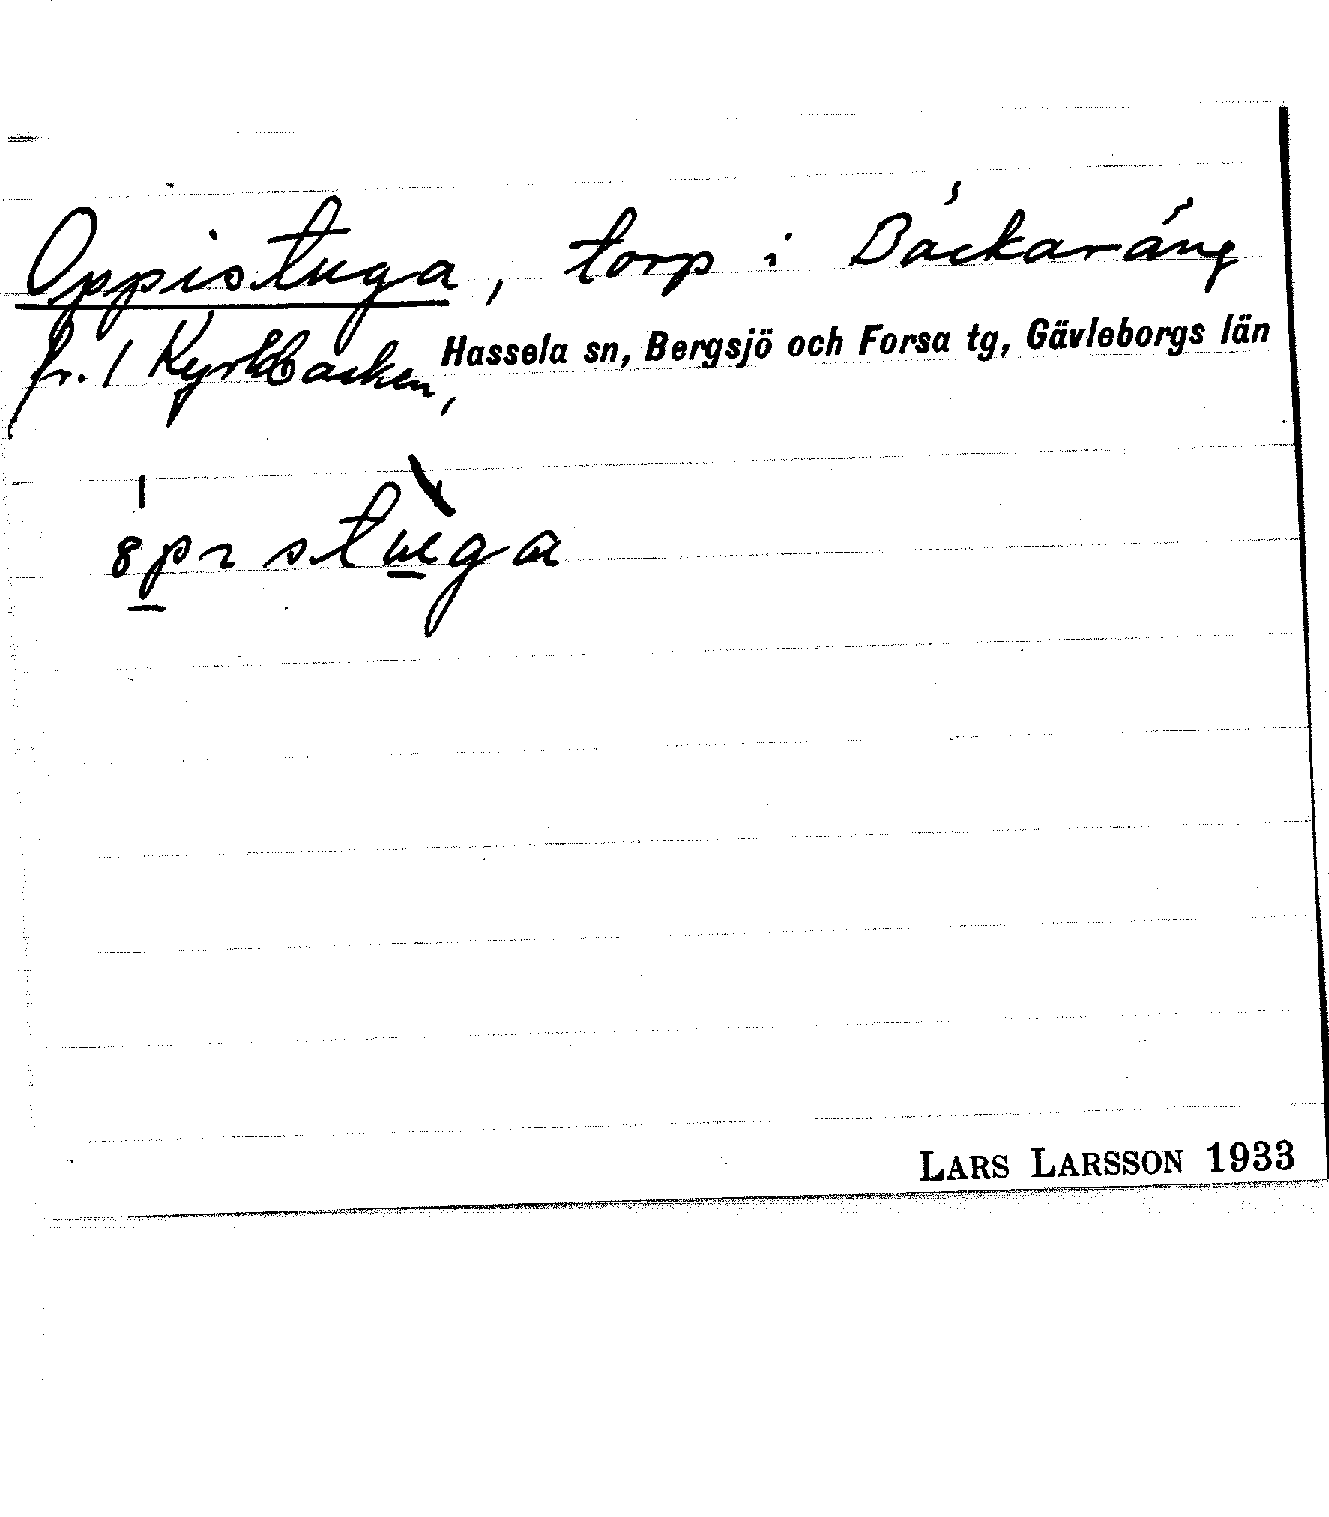 Oppistuga, torp i Bäckaräng
fr. 1 Kyrkbacken, Hassela sn, Bergsjö och Forsa tg, Gävleborgs län
LARS LARSSON 1933